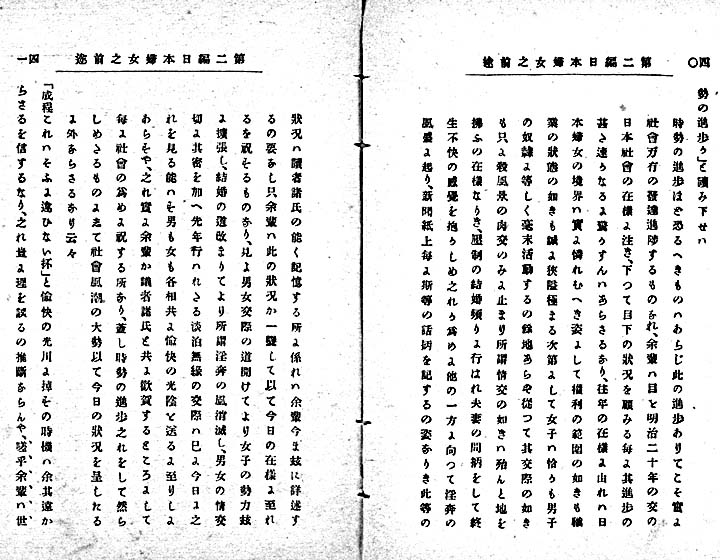 第二編日本婦女之前途
四〇
勢の進歩ゟ」と讀み下せハ
時勢の進歩ほど恐るへきものハあらじ此の進歩ありてこそ實よ
社會万有の發達進陟するものなれ、余輩ハ目と明治二十年の交の
日本社會の在樣よ注き、下つて目下の狀况を顧みる每よ其進歩の
甚さ速うなるよ驚うすんハあらさるなり、往年の在樣よ由れハ日
本婦女の境界ハ實よ憐れむへき姿よして權利の範圍の如きも職
業の狀態の如きも誠よ狹隘極まる次第よして女子ハ恰うも男子
の奴隷よ等しく毫末活動するの餘地あらや從つて其交際の如き
も只よ殺風景の肉交のみよ止まり所謂情交の如きハ殆んと地を
拂ふの在樣なりき、壓制の結婚頻りよ行はれ夫妻の間柄をして終
生不快の感覺を抱うしめ之れう爲めよ他の一方よ向つて淫奔の
風盛よ起り、新聞紙上每よ斯等の話柄を記するの姿なりき此等の
第二編日本婦女之前途
四一
狀况ハ讀者諸氏の能く記憶する所よ係れハ余輩今ま玆に詳述す
るの要なし只、余輩ハ此の狀况か一變して以て今日の在樣よ至れ
るを祝そるものなり、見よ男女交際の道開けてより女子の勢力玆
よ擴張し、結婚の道改まりてより所謂淫奔の風消滅し、男女の情交
切よ其密を加へ先年行ハれさる淡泊無緣の交際ハ已よ今日よ之
れを見る能ハそ男も女も各相共よ愉快の光陰と送るよ至りしよ
あらそや、之れ實よ余輩か讀者諸氏と共よ歡賀するところよして
每よ社會の爲めよ祝する所なり、蓋し時勢の進歩之れをして然ら
しめさるものよ之て社會風潮の大勢以て今日の狀况を呈したる
よ外ならさるなり云々
「成程これハそふよ違ひない杯」と愉快の光川よ掉その時機ハ余其遠か
らさるを信するなり、之れ豈よ理を誤るの推斷ならんや、嗟乎余輩ハ世